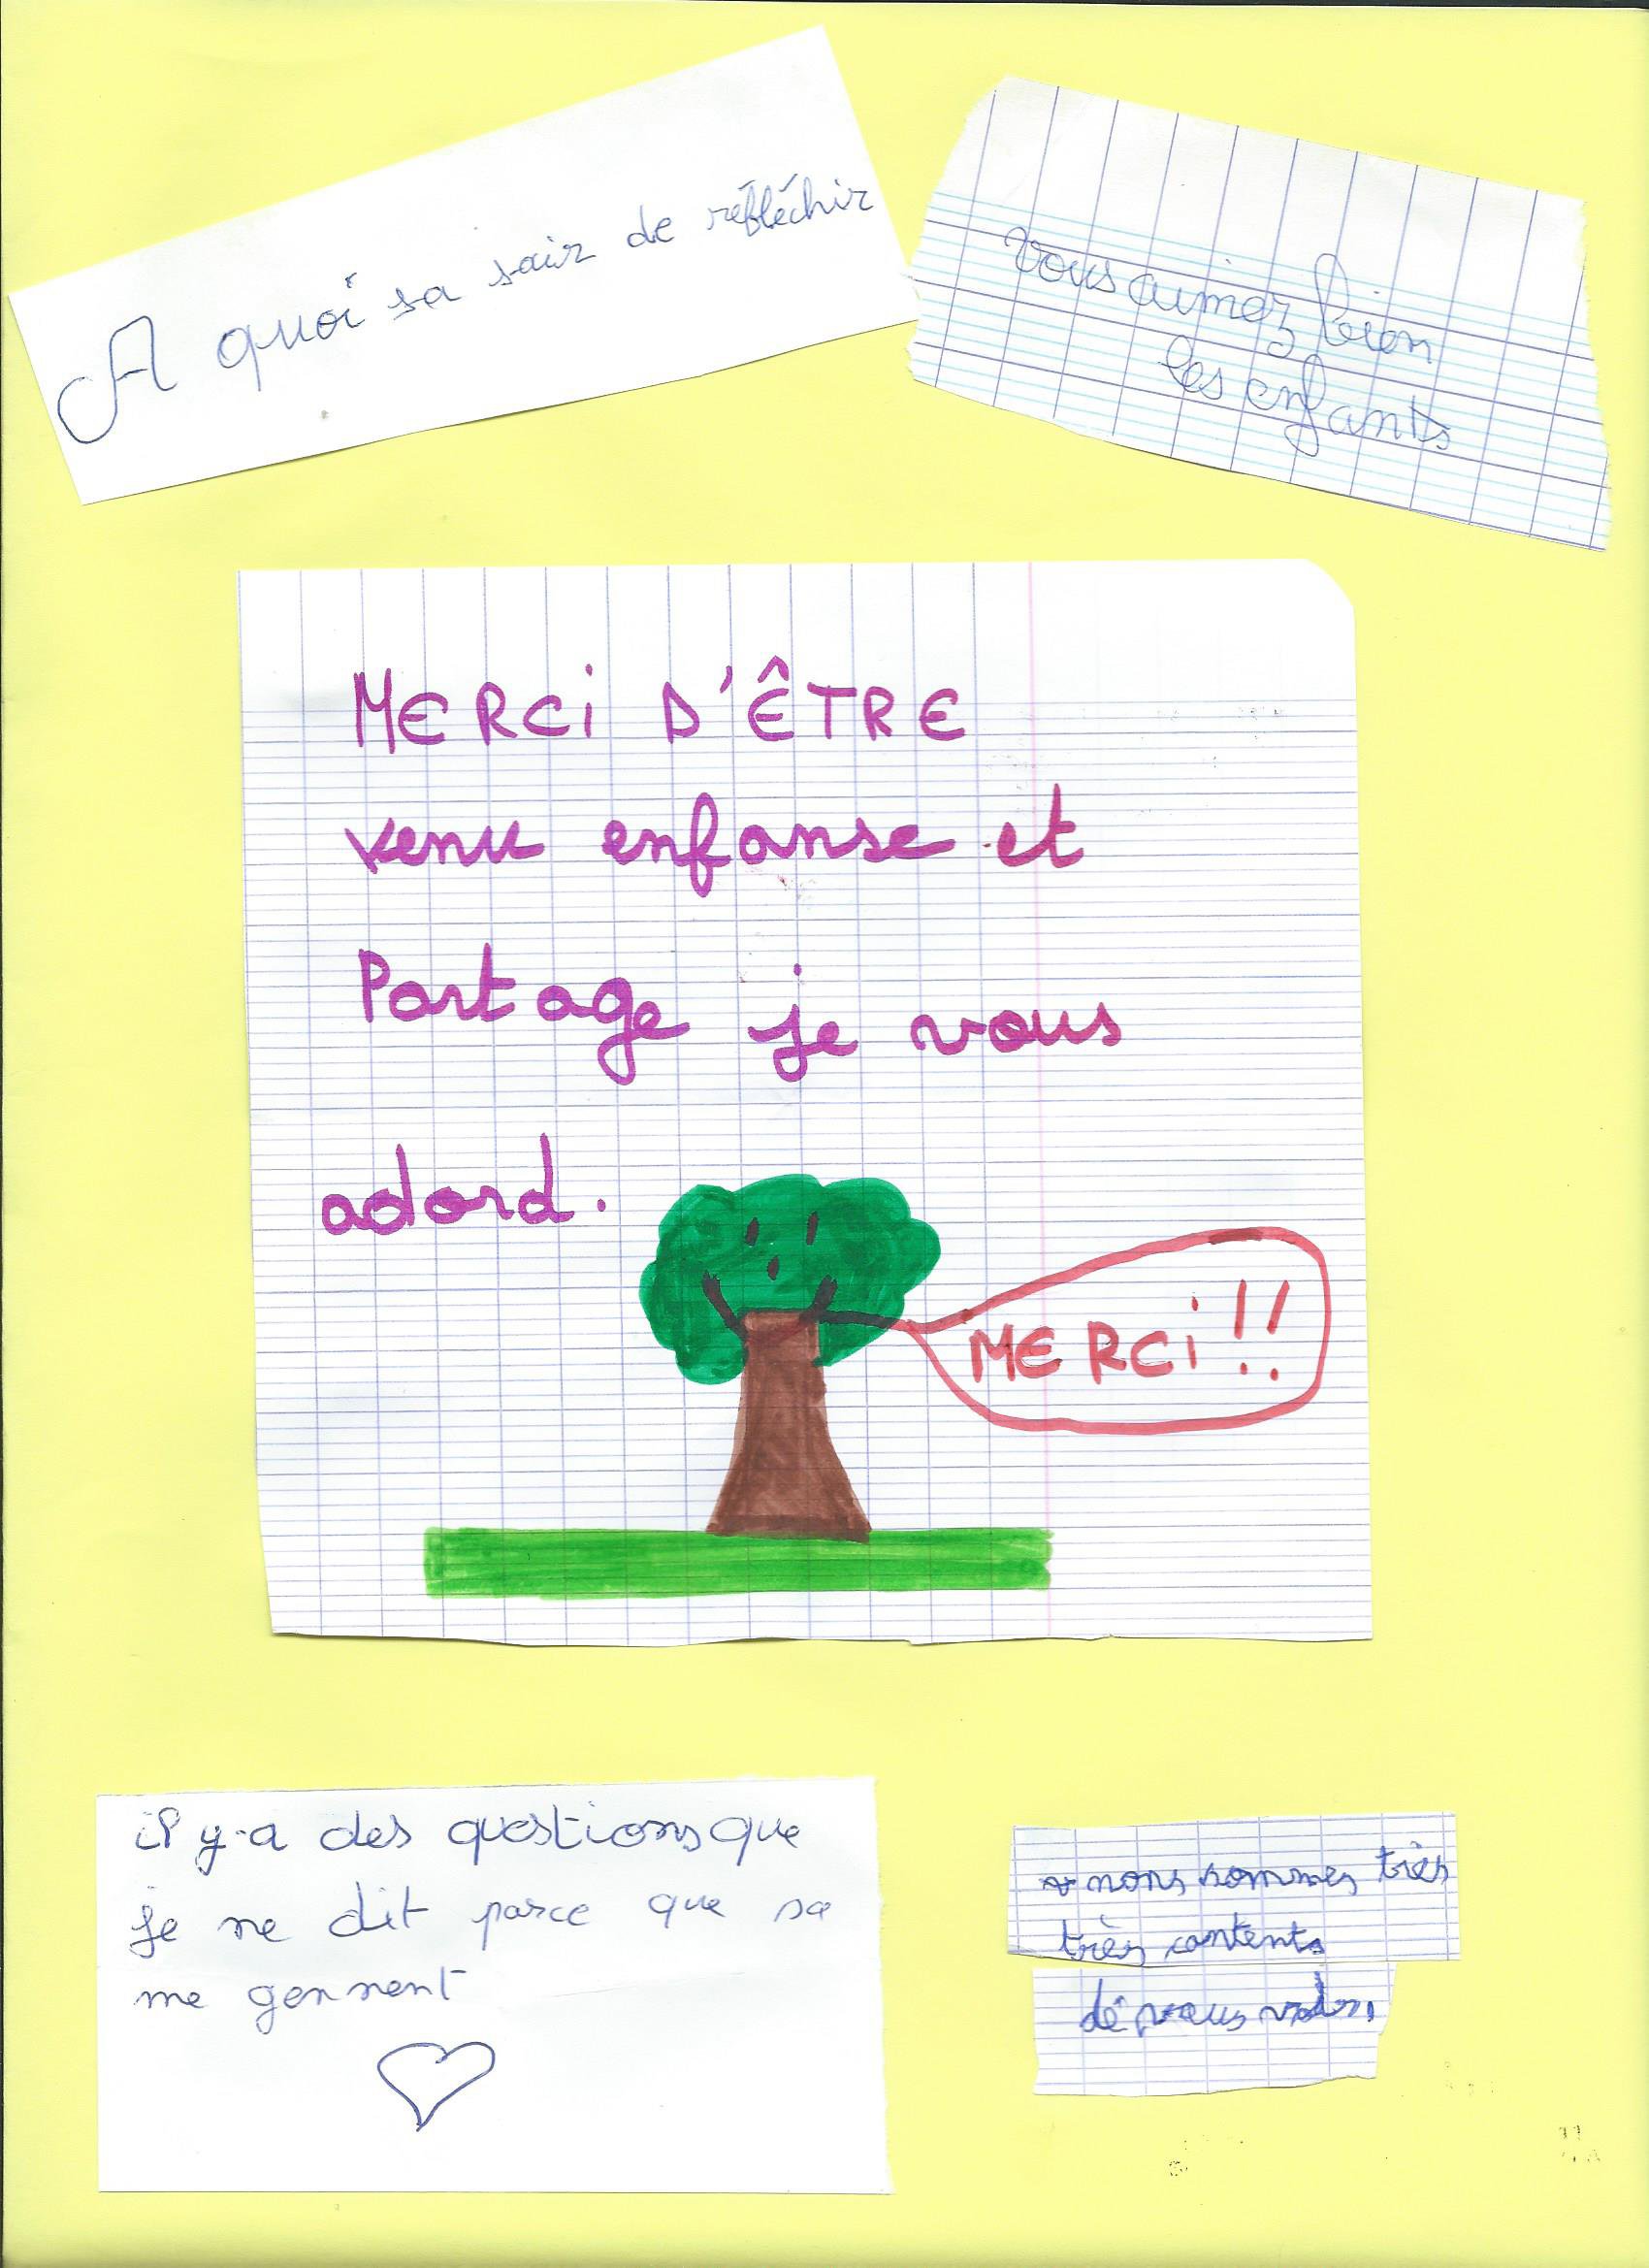 A quoi sa sair de réfléchir
vous aimez bien
les enfants
MERCi D'ÊTRE
venu enfanse et
Partage je vous
adord.
MERCi!!
il y-a des questions que
je ne dit parce que sa
me gennent
nous sommes très
très contents
dé vous